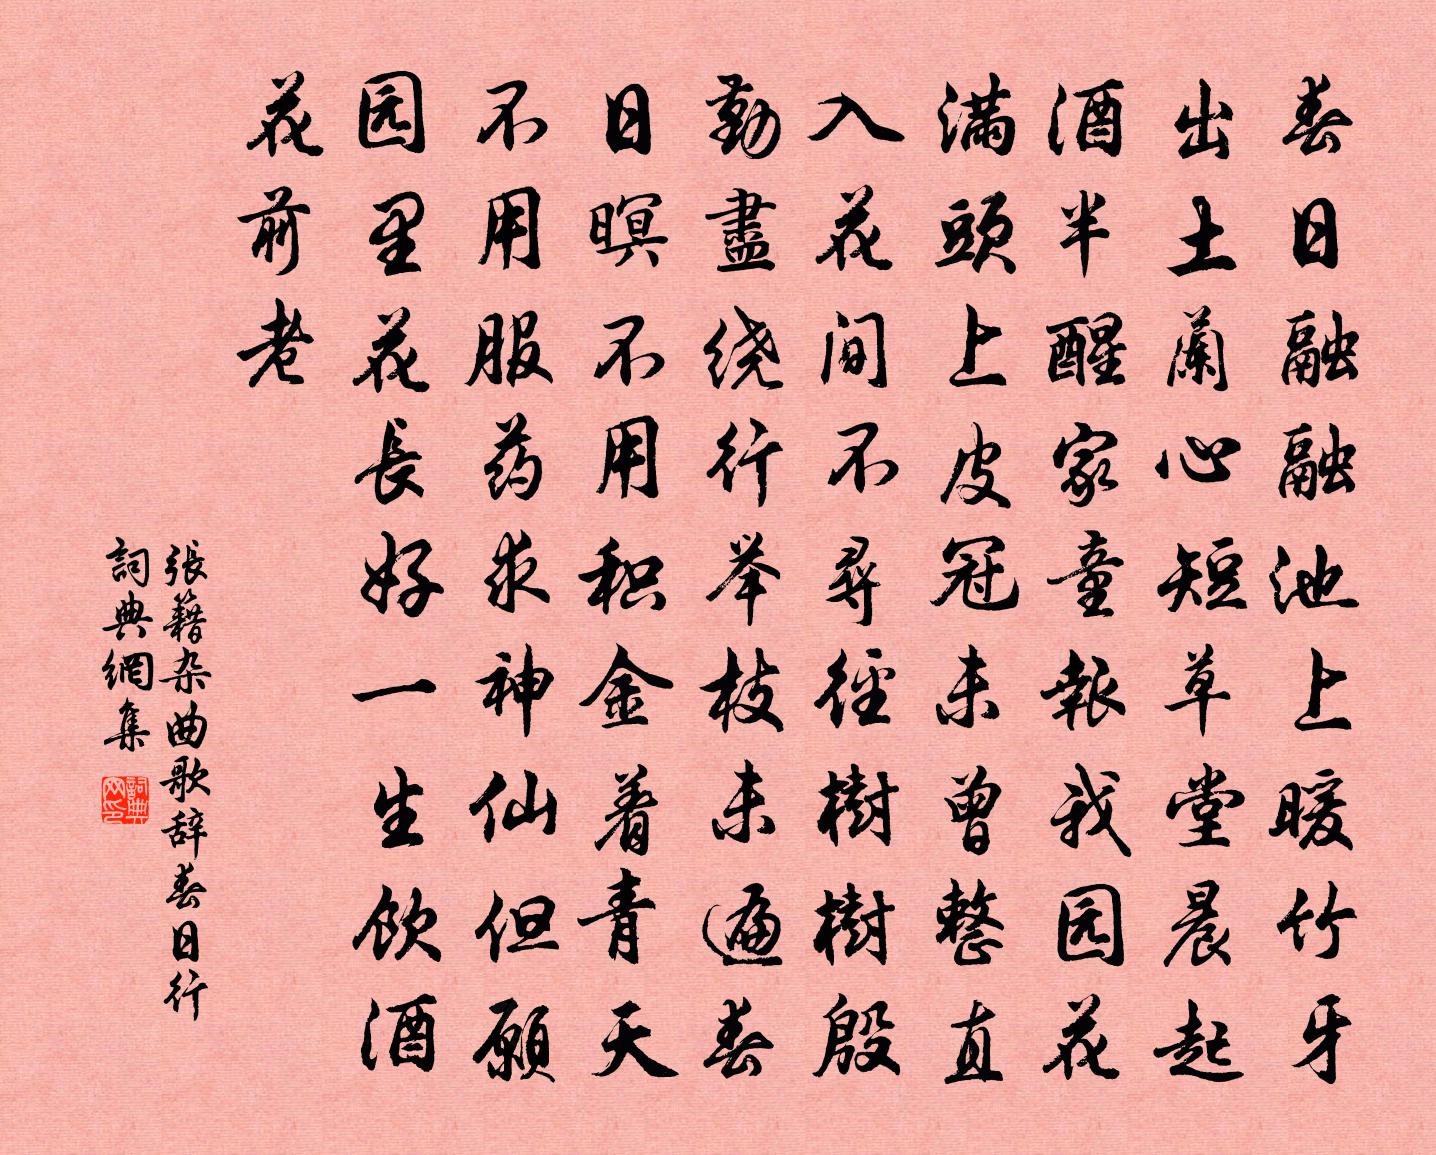 春日融融池上暖竹牙
出土蘭心短草堂晨起
酒半醒家童報我园花
滿頭上皮冠未曾整直
入花间不尋徑樹樹殷
勤盡绕行举枝未遍春
日暝不用积金着青天
不用服药求神仙但願
园里花長好一生飲酒
花前老
張籍杂曲歌辞春日行
詞典網集
詞典网印